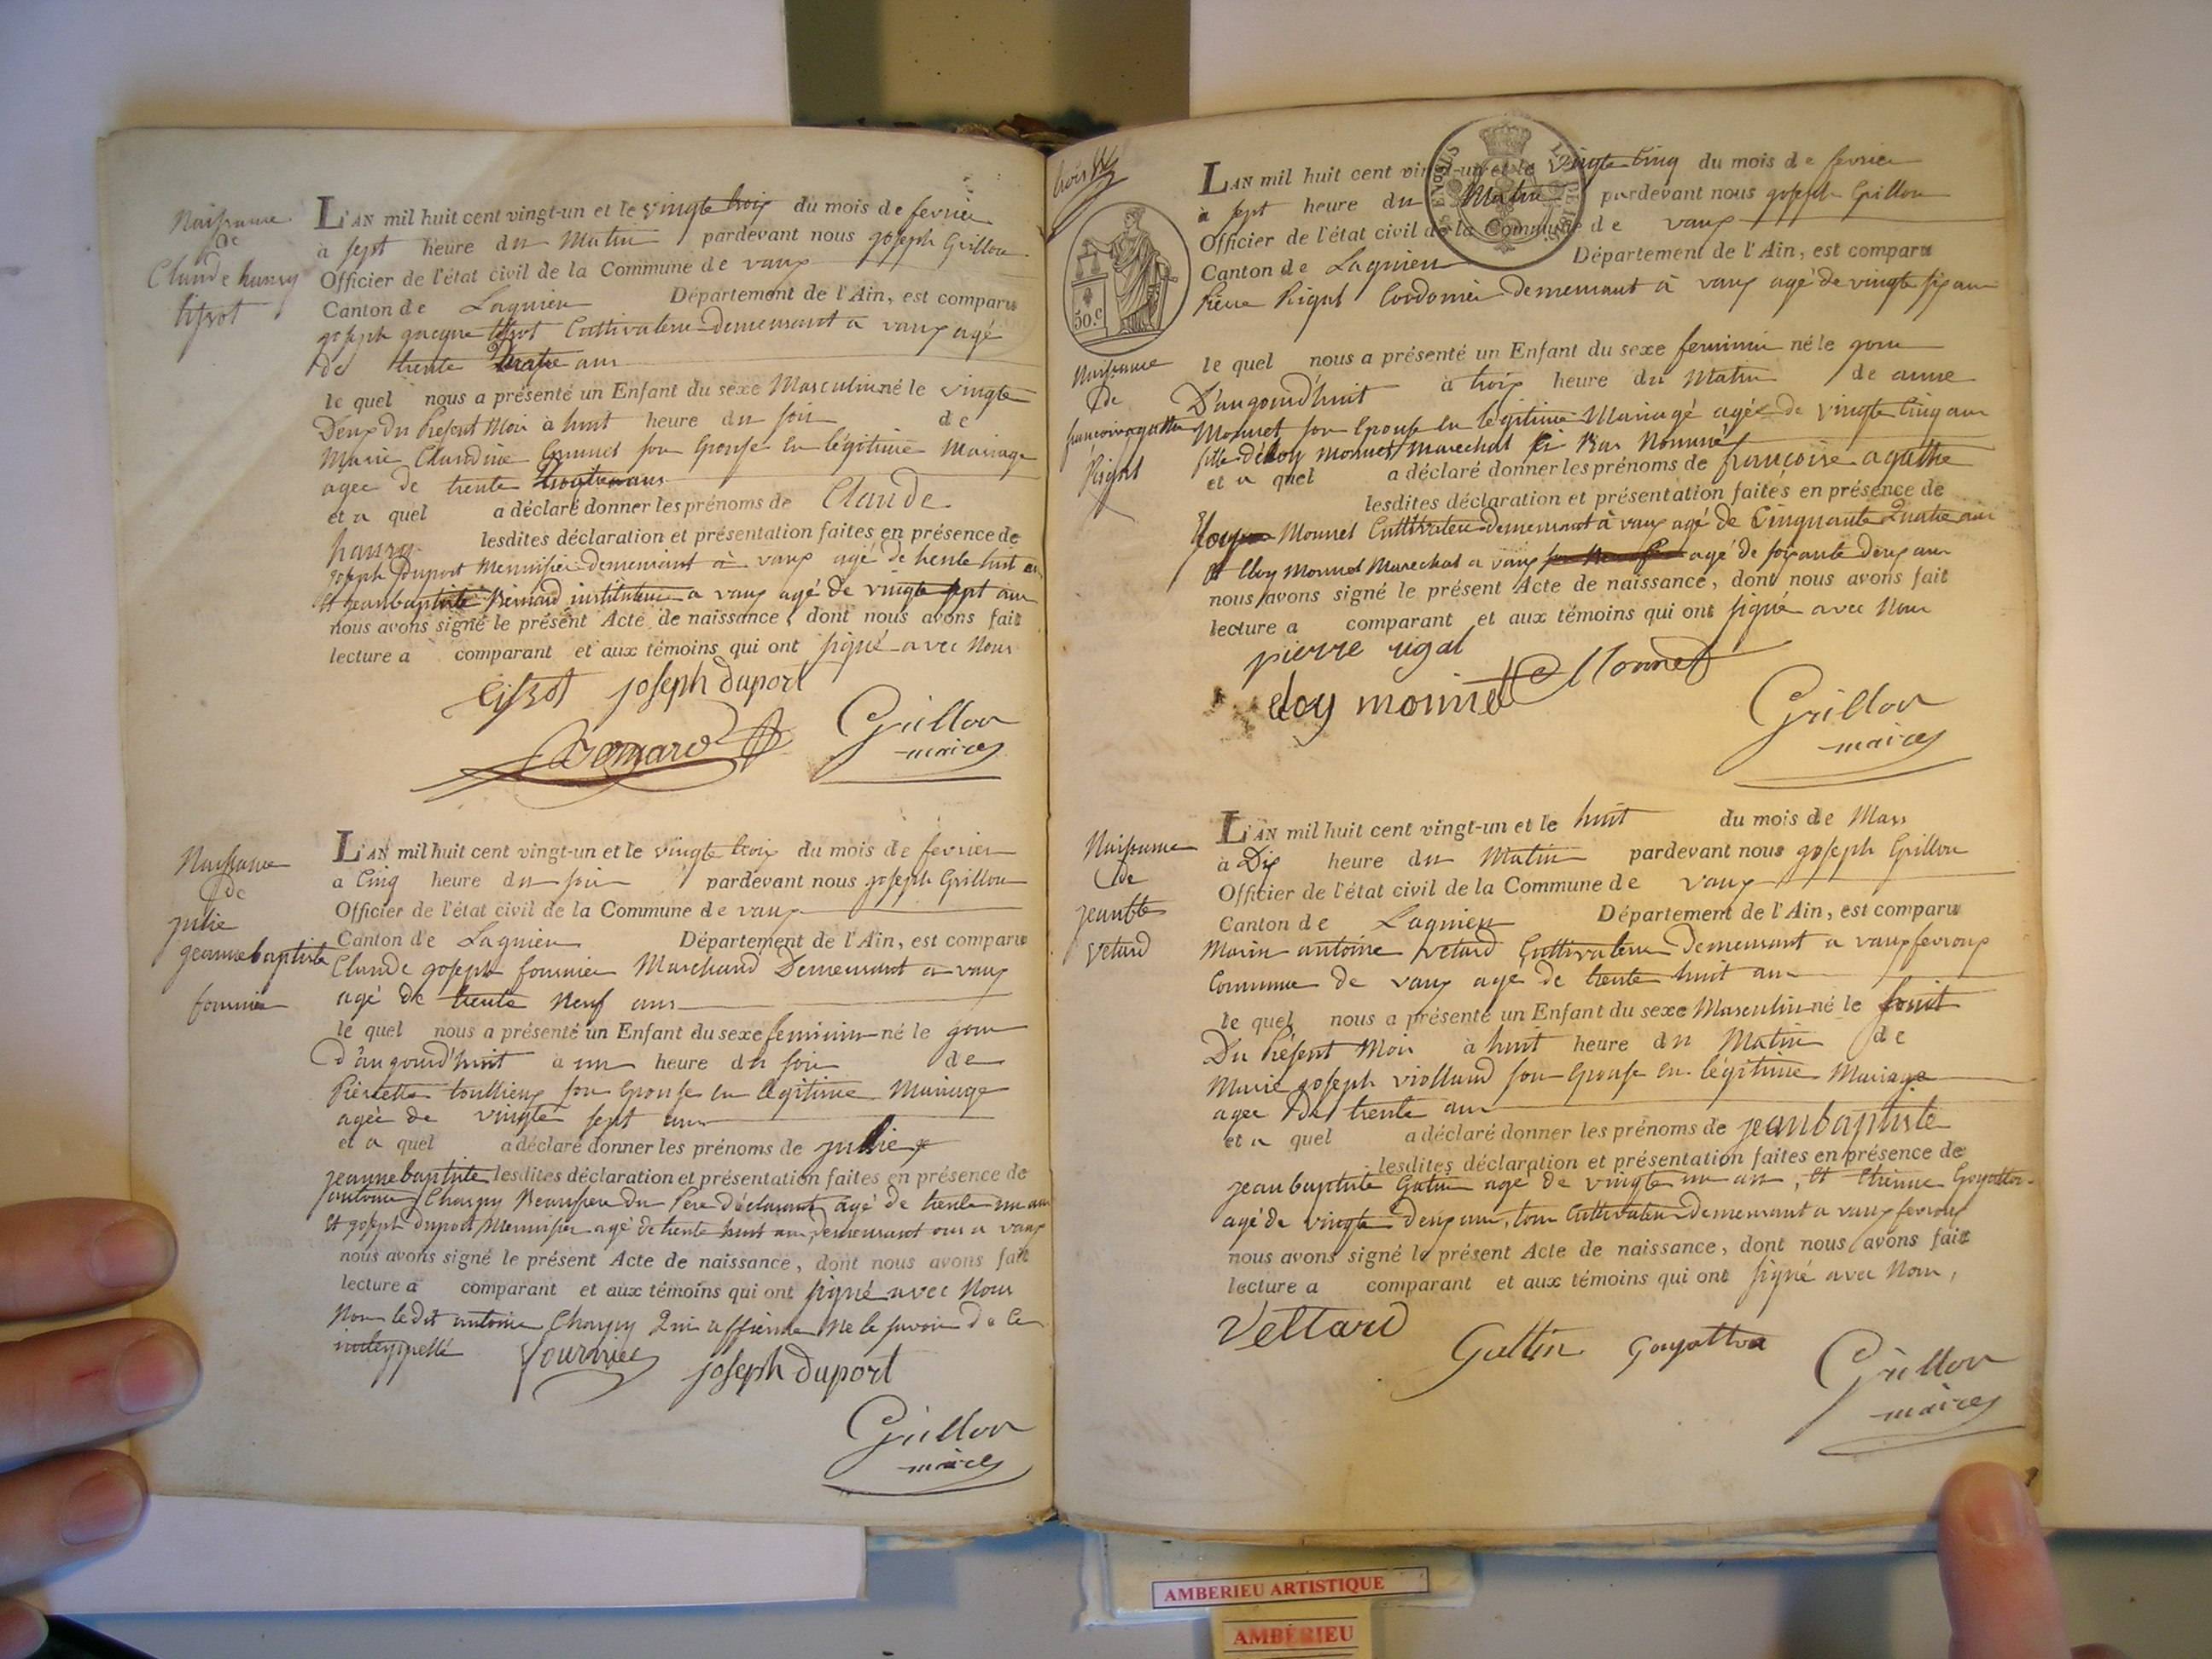 Naissance
de
Claude hanry
tissot
L'AN mil huit cent vingt-un et le vingte trois du mois de fevrier
à sept heure du Matin pardevant nous joseph Grillon
Officier de l'état civil de la Commune de vaux
Canton de Lagnieu Département de l'Ain, est comparu
joseph jacque tissot Cultivateur demeurant a vaux agé
de trente quatre ans
le quel nous a présenté un Enfant du sexe Masculin né le vingte
Deux du Présent Moi à huit heure du soir de
Marie Claudine son Epouse en légitime Mariage
agee de trente ans
et a quel a déclaré donner les prénoms de Claude
hanry lesdites déclaration et présentation faites en présence de
joseph Duport Mennisier demeurant à vaux agé de trente huit ans
Et jeanbaptiste Bernard instituteur a vaux agé de vingte sept ans
nous avons signé le présent Acte de naissance, dont nous avons fait
lecture a comparant et aux témoins qui ont signé avec Nous
tissot joseph duport
Bernard Grillon
maire
Naissance
de
julie
jeannebaptiste
fournier
L'AN mil huit cent vingt-un et le vingte trois du mois de fevrier
a Cinq heure du soir pardevant nous joseph Grillon
Officier de l'état civil de la Commune de vaux
Canton de Lagnieu Département de l'Ain, est comparu
Claude joseph fournier Marchand Demeurant a vaux
agé de trente Neuf ans
le quel nous a présenté un Enfant du sexe feminin né le jour
d'aujourd'huit a un heure du soir de
Pierrette toullieux son Epouse en legitime Mariage
agée de vingte sept ans
et a quel a déclaré donner les prénoms de julie
jeannebaptiste lesdites déclaration et présentation faites en présence de
antoine Charpy Beaufrere du Pere déclarant agé de trente un ans
Et joseph duport Mennisier agé de trente huit ans, demeurant ous a vaux
nous avons signé le présent Acte de naissance, dont nous avons fait
lecture a comparant et aux témoins qui ont signé avec Nous
Non ledit antoine Charpy Qui a affirme Ne le savoir de Ce
interppellé fournier joseph duport
Grillon
maire
trois
50.c
L'AN mil huit cent vingt-un et le vingte Cinq du mois de fevrier
à sept heure du Matin pardevant nous joseph Grillon
Officier de l'état civil de la Commune de vaux
Canton de Lagnieu Département de l'Ain, est comparu
Pierre Rigal Cordonnier demeurant à vaux agé de vingte six ans
Naissance
de
francoise agathe
Rigal
le quel nous a présenté un Enfant du sexe feminin né le jour
D'aujourd'huit à trois heure du Matin de anne
Monnet son Epouse en legitime Mariagé agée de vingte Cinq ans
fille d'éloy monnet Marechal Ci Bas Nommé
et a quel a déclaré donner les prénoms de francoise agathe
lesdites déclaration et présentation faites en présence de
Monnet Cultivateur demeurant à vaux agé de Cinquante Quatre ans
Et Eloy Monnet Marechal a vaux agé de soixante deux ans
nous avons signé le présent Acte de naissance, dont nous avons fait
lecture a comparant et aux témoins qui ont signé avec Nous
pierre rigal
eloy monnet Monnet
Grillon
maire
Naissance
de
jeanbte
Vetard
L'AN mil huit cent vingt-un et le huit du mois de Mars
à Dix heure du Matin pardevant nous joseph Grillon
Officier de l'état civil de la Commune de vaux
Canton de Lagnieu Département de l'Ain, est comparu
Marin antoine Vetard Cultivateur Demeurant a vauxfevroux
Commune de vaux age de trente huit ans
le quel nous a présenté un Enfant du sexe Masculin né le huit
Du Présent Moi à huit heure du Matin de
Marie joseph violland son Epouse en légitime Mariage
agee de trente ans
et a quel a déclaré donner les prénoms de jeanbaptiste
lesdites déclaration et présentation faites en présence de
jeanbaptiste Gutin agé de vingte un ans, Et Etienne Goyatton
agé de vingte Deux ans, tous Cultivateur demeurant a vauxfevroux
nous avons signé le présent Acte de naissance, dont nous avons fait
lecture a comparant et aux témoins qui ont signé avec Nous,
Vettard
Guttin Goyatton
Grillon
maire
AMBERIEU ARTISTIQUE
AMBÉRIEU